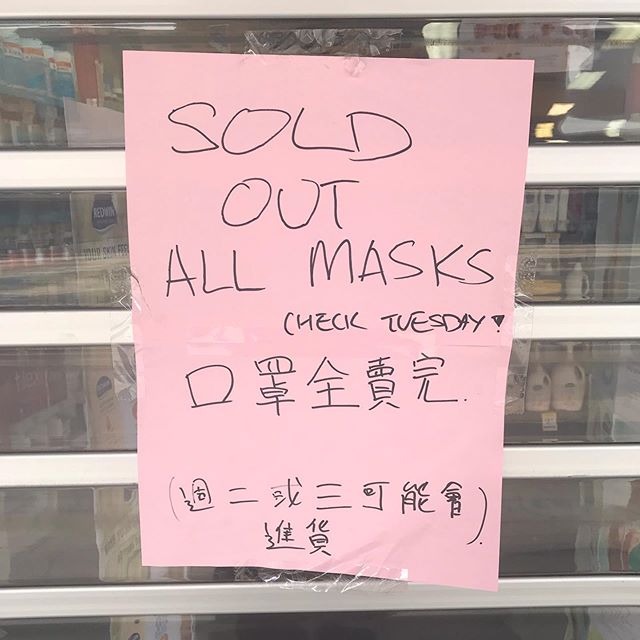 SOLD
OUT
ALL MASKS
CHECK TUESDAY!
口罩全賣完.
(週二或三可能會
進貨).
REDWIN
YOUR SKIN FEE